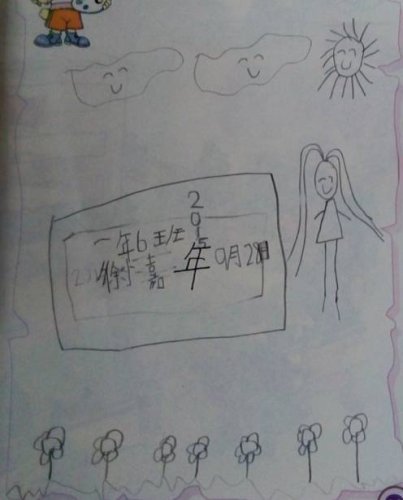 一年6班
徐梓嘉
2015年9月28日